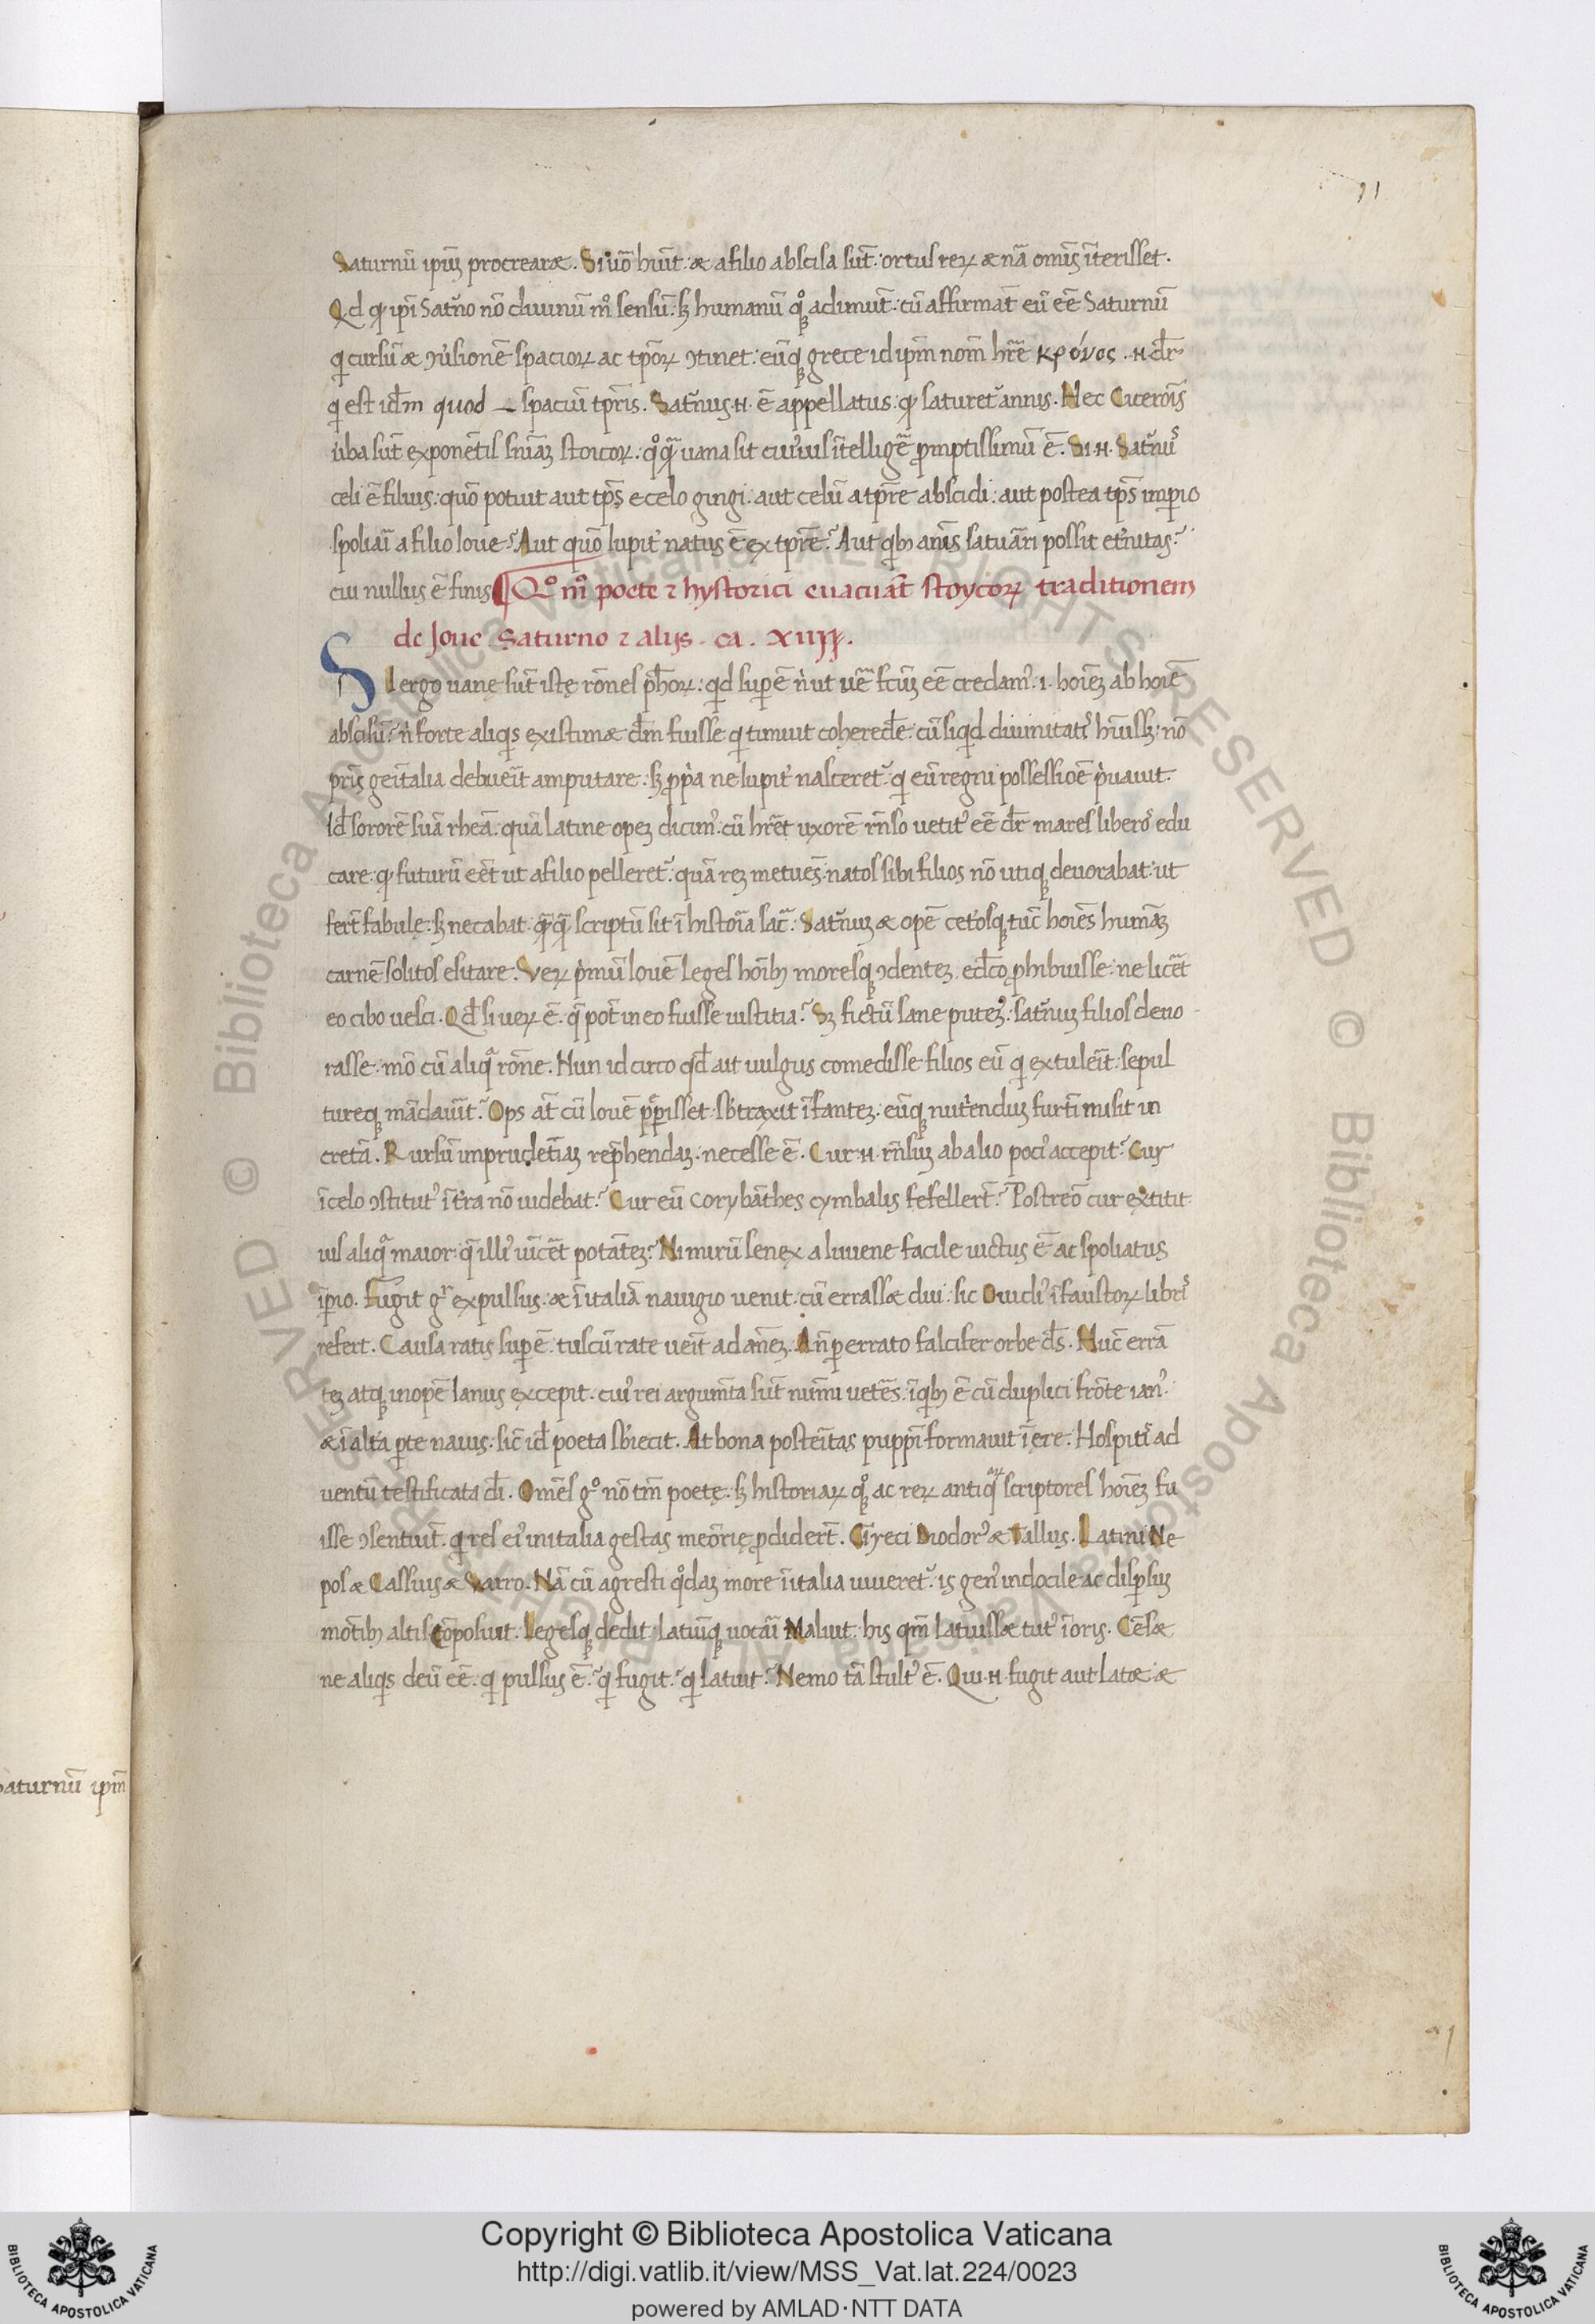 11
Saturnū ipm̄ procrearæ. Si uō hnt̄: æ a filio abscisa sūt: ortus reꝝ æ nā omīs īterisset.
Qd q ipi Satno nō diuinū mo sensū: sꝫ humanū qꝫ adimūt: cū affirmāt eū eē Saturnū
qi cursū æ ꝯuersionē spacioꝝ ac tpōꝝ ꝯtinet: eūqꝫ grece id ipm̄ nom̄ hr̄e κρόνος .n. dr̄
qi est idm̄ quod — spaciū tpr̄is. Satnus .n. ē appellatus: q saturet annis. Nec Cicerōis
uba sūt exponētis sniaꝫ stoicoꝝ: qd qa uana sit cuiuis ītelligē promptissimū ē. Si .n. Satnus
celi ē filius: quō potuit aut tps̄ e celo gingi: aut celū a tpr̄e abscidi: aut postea tps̄ imperio
spoliari a filio Ioue? Aut quō Iupiter natus ē ex tpr̄e? Aut qibꝫ annis saturari possit eternitas?
cui nullus ē finis ¶ Qo mo poete ⁊ hystorici euacuāt stoycoꝝ traditionem
de Ioue Saturno ⁊ alijs . ca . xiiij.
SI ergo uanę sūt istę rōnes phoꝝ: qid superē ni ut uē fcūꝫ eē credam. i. hoīeꝫ ab hoīe
abscisū? ni forte aliqis existimæ dm̄ fuisse qi timuit coherede: cū siqid diuinitatis huissꝫ: nō
pris genitalia debuerit amputare: sꝫ propria ne Iupiter nasceret qi eū regni possessiōe priuauit.
Id sororē suā rheā: quā latine opeꝫ dicim. cū hrēt uxorē rn̄so uetit eē dr̄ mares liberos edu
care: q futurū eēt ut a filio pelleret: quā reꝫ metuēs natos sibi filios nō utiqꝫ deuorabat: ut
fert fabulę: sꝫ necabat: qāqā scriptū sit ī historia sac: Satnuꝫ æ opē ceterosqꝫ tūc hoīes humaꝫ
carnē solitos esitare. Veꝝ primū Iouē leges hoībꝫ moresqꝫ ꝯdenteꝫ. edco prohibuisse: ne licēt
eo cibo uesci. Qd si ueꝝ ē. q pot in eo fuisse iustitia? Sꝫ fictū sane puteꝫ: satnuꝫ filios deuo
rasse: mō cū aliqa rōne. Nun id circo qd ait uulgus comedisse filios eū qi extulerit: sepul
tureqꝫ mādauit? Ops at cū Iouē peperisset: sbtraxit īfanteꝫ: eūqꝫ nutriendū furtī misit in
cretā. Rursū imprudētiaꝫ reprehendaꝫ: necesse ē. Cur .n. rn̄sū ab alio poci accepit? Cur
ī celo ꝯstitut ītra nō uidebat? Cur eū corybāthes cymbalis fefellert? Postreō cur extitit
uis aliqa maior: q illi uicēt potāteꝫ? Nimirū senex a Iuuene facile uictus ē ac spoliatus
īperio. Fugit gr expullus: æ ī italiā nauigio uenit: cū errassæ diu: sic Ouidi ī faustoꝝ libris
refert. Causa ratis superē: tuscū rate uenit ad amnē. Ān pererrato falcifer orbe ds̄. Nūc errā
teꝫ atqꝫ inopē Ianus excepit. cui rei argumēta sūt nummi uetēs: īqibꝫ ē cū duplici frōte ian.
æ ī alta perte nauis: sic idē poeta sbiecit. At bona posteitas puppī formauit ī ere: Hospiti ad
uentū testificata di. Omēs go nō tm̄ poetę: sꝫ historiaꝝ qꝫ ac reꝝ antiqa scriptores hoīeꝫ fu
isse ꝯsentiūt. qi res ei in italia gestas meōrię prodidert. Greci Diodorꝰ æ Tallus. Latini Ne
pos æ Cassius æ Varro. Nā cū agresti qodaꝫ more ī italia uiueret: is gen indocile ac dispersū
mōtibꝫ altis cōposuit. Legesqꝫ dedit: Latiūqꝫ uocari Maluit: his qm̄ latuissæ tut ī oris. Cēsæ
ne aliqis deū eē. qi pullus ē? qi fugit? qi latuit? Nemo tā stult ē. Qui .n. fugit aut latæ æ
Saturnū ipm̄
Copyright © Biblioteca Apostolica Vaticana
http://digi.vatlib.it/view/MSS_Vat.lat.224/0023
powered by AMLAD·NTT DATA